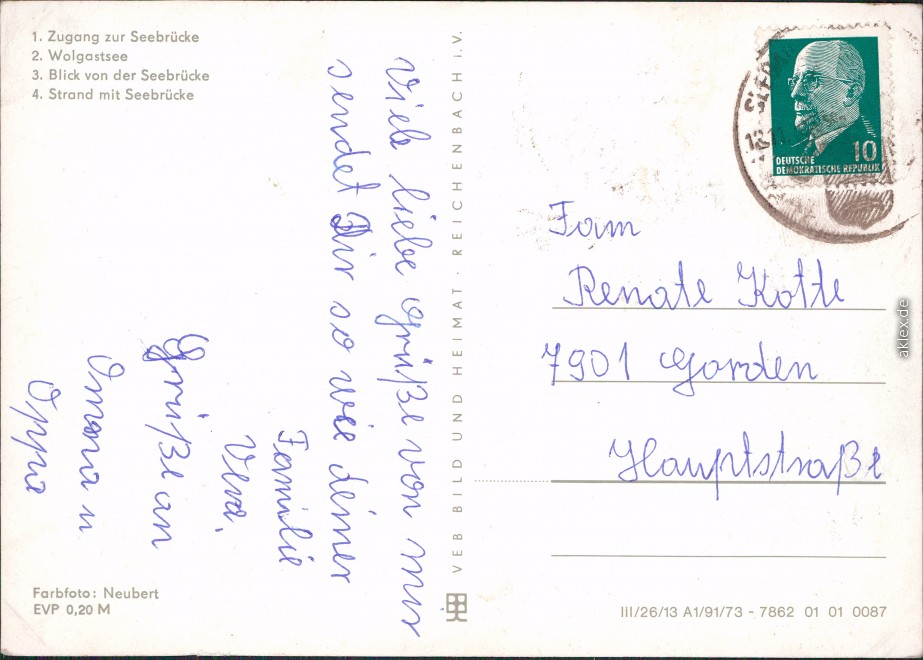 1. Zugang zur Seebrücke
2. Wolgastsee
3. Blick von der Seebrücke
4. Strand mit Seebrücke
Viele liebe Grüße von mir
sendet Dir so wie deiner
Familie
Vera.
Grüße an
Omona u
Oppa
Farbfoto: Neubert
EVP 0,20 M
VEB BILD UND HEIMAT · REICHENBACH i.V.
10
DEUTSCHE
DEMOKRATISCHE REPUBLIK
Fam
Renate Kotte
7901 Gorden
Hauptstraße
III/26/13 A1/91/73 - 7862 01 01 0087
aklex.de